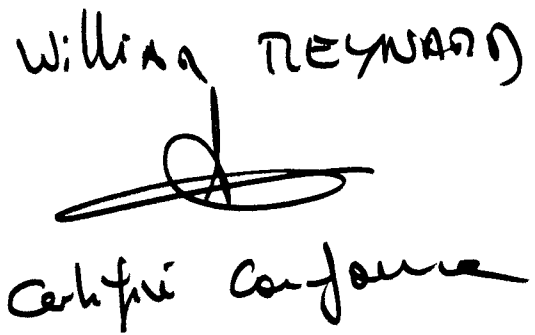 William REYNARD
Certifié Conforme